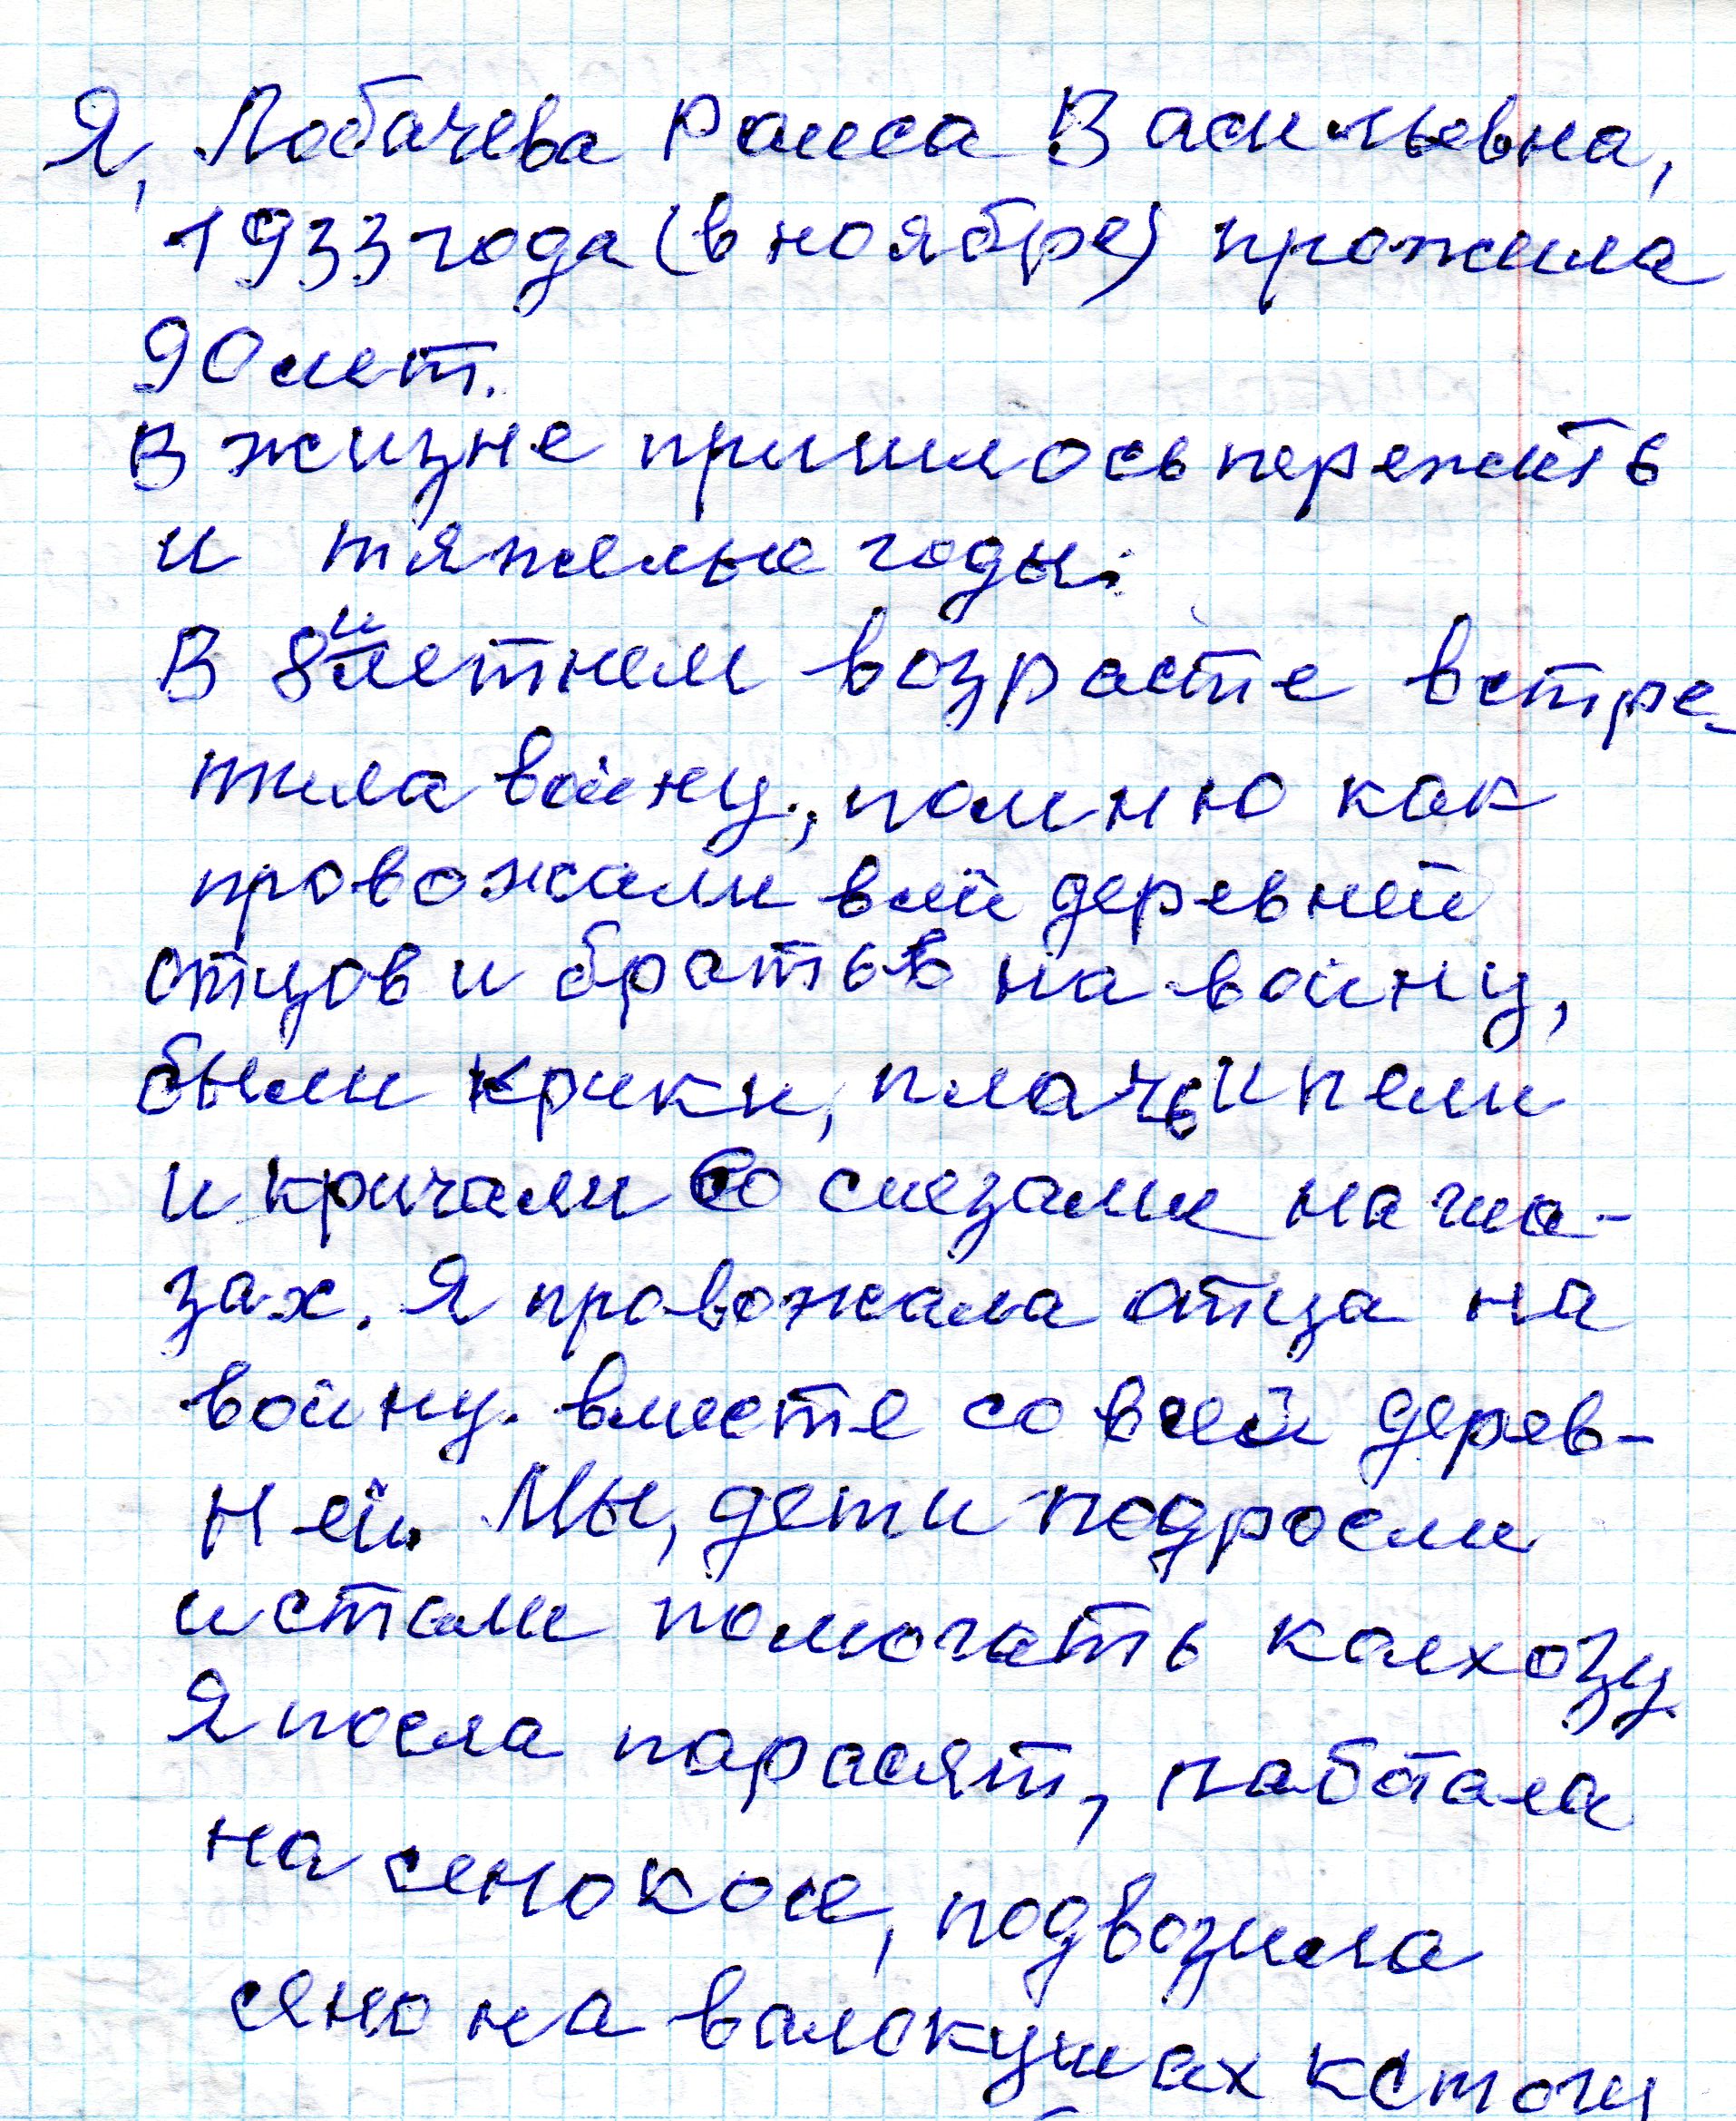 Я, Лобачева Раиса Васильевна,
1933 года (в ноябре) прожила
90 лет.
В жизне пришлось пережить
и тяжелые годы.
В 8и летнем возрасте встре-
тила войну, помню как
провожали всей деревней
отцов и братьев на войну,
были крики, плачь и пели
и кричали со слезами на гла-
зах. Я провожала отца на
войну. вместе со всей дерев-
ней. Мы, дети подросли
и стали помогать колхозу
Я посла парасят, работала
на сенокосе, подвозила
сено на валокушах к стогу